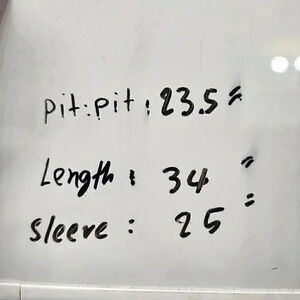 pit:pit:23.5"
Length: 34"
sleeve: 25"